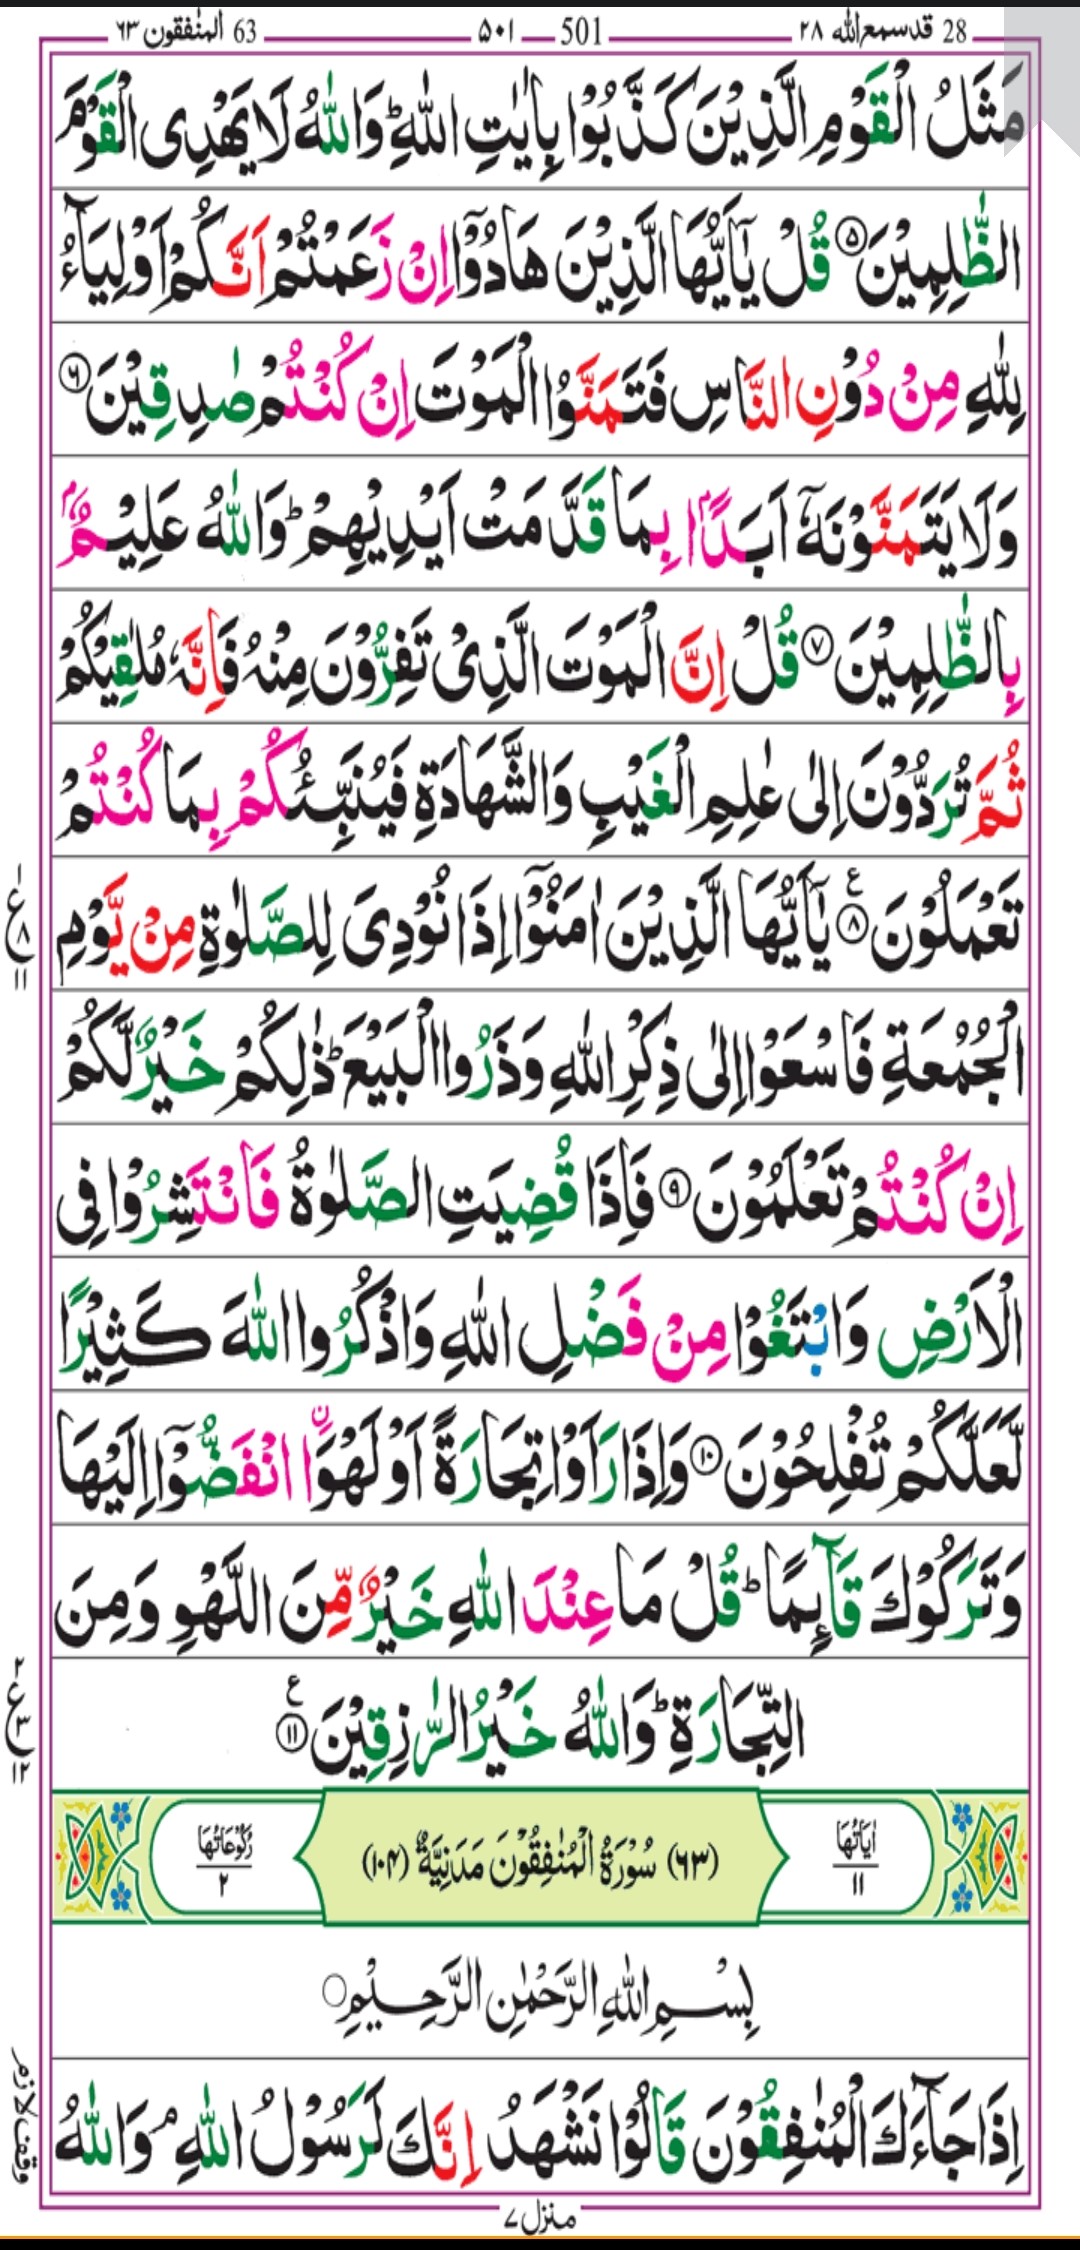 28 قدسمع الله ٢٨ 501 ۵۰۱ 63 المنٰفقون ٦٣
مَثَلُ الْقَوْمِ الَّذِيْنَ كَذَّبُوْا بِاٰيٰتِ اللّٰهِ ؕ وَاللّٰهُ لَا يَهْدِى الْقَوْمَ
الظّٰلِمِيْنَ ۵ قُلْ يٰۤاَيُّهَا الَّذِيْنَ هَادُوْۤا اِنْ زَعَمْتُمْ اَنَّكُمْ اَوْلِيَآءُ
لِلّٰهِ مِنْ دُوْنِ النَّاسِ فَتَمَنَّوُا الْمَوْتَ اِنْ كُنْتُمْ صٰدِقِيْنَ ۶
وَلَا يَتَمَنَّوْنَهٗۤ اَبَدًۢا بِمَا قَدَّمَتْ اَيْدِيْهِمْ ؕ وَاللّٰهُ عَلِيْمٌۢ
بِالظّٰلِمِيْنَ ۷ قُلْ اِنَّ الْمَوْتَ الَّذِىْ تَفِرُّوْنَ مِنْهُ فَاِنَّهٗ مُلٰقِيْكُمْ
ثُمَّ تُرَدُّوْنَ اِلٰى عٰلِمِ الْغَيْبِ وَالشَّهَادَةِ فَيُنَبِّئُكُمْ بِمَا كُنْتُمْ
تَعْمَلُوْنَ ۸ ع يٰۤاَيُّهَا الَّذِيْنَ اٰمَنُوْۤا اِذَا نُوْدِىَ لِلصَّلٰوةِ مِنْ يَّوْمِ
ع ١ ٨ ١١
الْجُمُعَةِ فَاسْعَوْا اِلٰى ذِكْرِ اللّٰهِ وَذَرُوا الْبَيْعَ ؕ ذٰلِكُمْ خَيْرٌ لَّكُمْ
اِنْ كُنْتُمْ تَعْلَمُوْنَ ۹ فَاِذَا قُضِيَتِ الصَّلٰوةُ فَانْتَشِرُوْا فِى
الْاَرْضِ وَابْتَغُوْا مِنْ فَضْلِ اللّٰهِ وَاذْكُرُوا اللّٰهَ كَثِيْرًا
لَّعَلَّكُمْ تُفْلِحُوْنَ ۱۰ وَاِذَا رَاَوْا تِجَارَةً اَوْ لَهْوَا۟ ۨانْفَضُّوْۤا اِلَيْهَا
وَتَرَكُوْكَ قَآئِمًا ؕ قُلْ مَا عِنْدَ اللّٰهِ خَيْرٌ مِّنَ اللَّهْوِ وَمِنَ
التِّجَارَةِ ؕ وَاللّٰهُ خَيْرُ الرّٰزِقِيْنَ ۱۱ ع
ع ٢ ٣ ١٢
اٰيَاتُهَا ١١ (٦٣) سُوْرَةُ الْمُنٰفِقُوْنَ مَدَنِيَّةٌ (١٠٤) رُكُوْعَاتُهَا ٢
بِسْمِ اللّٰهِ الرَّحْمٰنِ الرَّحِيْمِ
اِذَا جَآءَكَ الْمُنٰفِقُوْنَ قَالُوْا نَشْهَدُ اِنَّكَ لَرَسُوْلُ اللّٰهِ ۘ وَاللّٰهُ
وقف لازم
منزل ۷